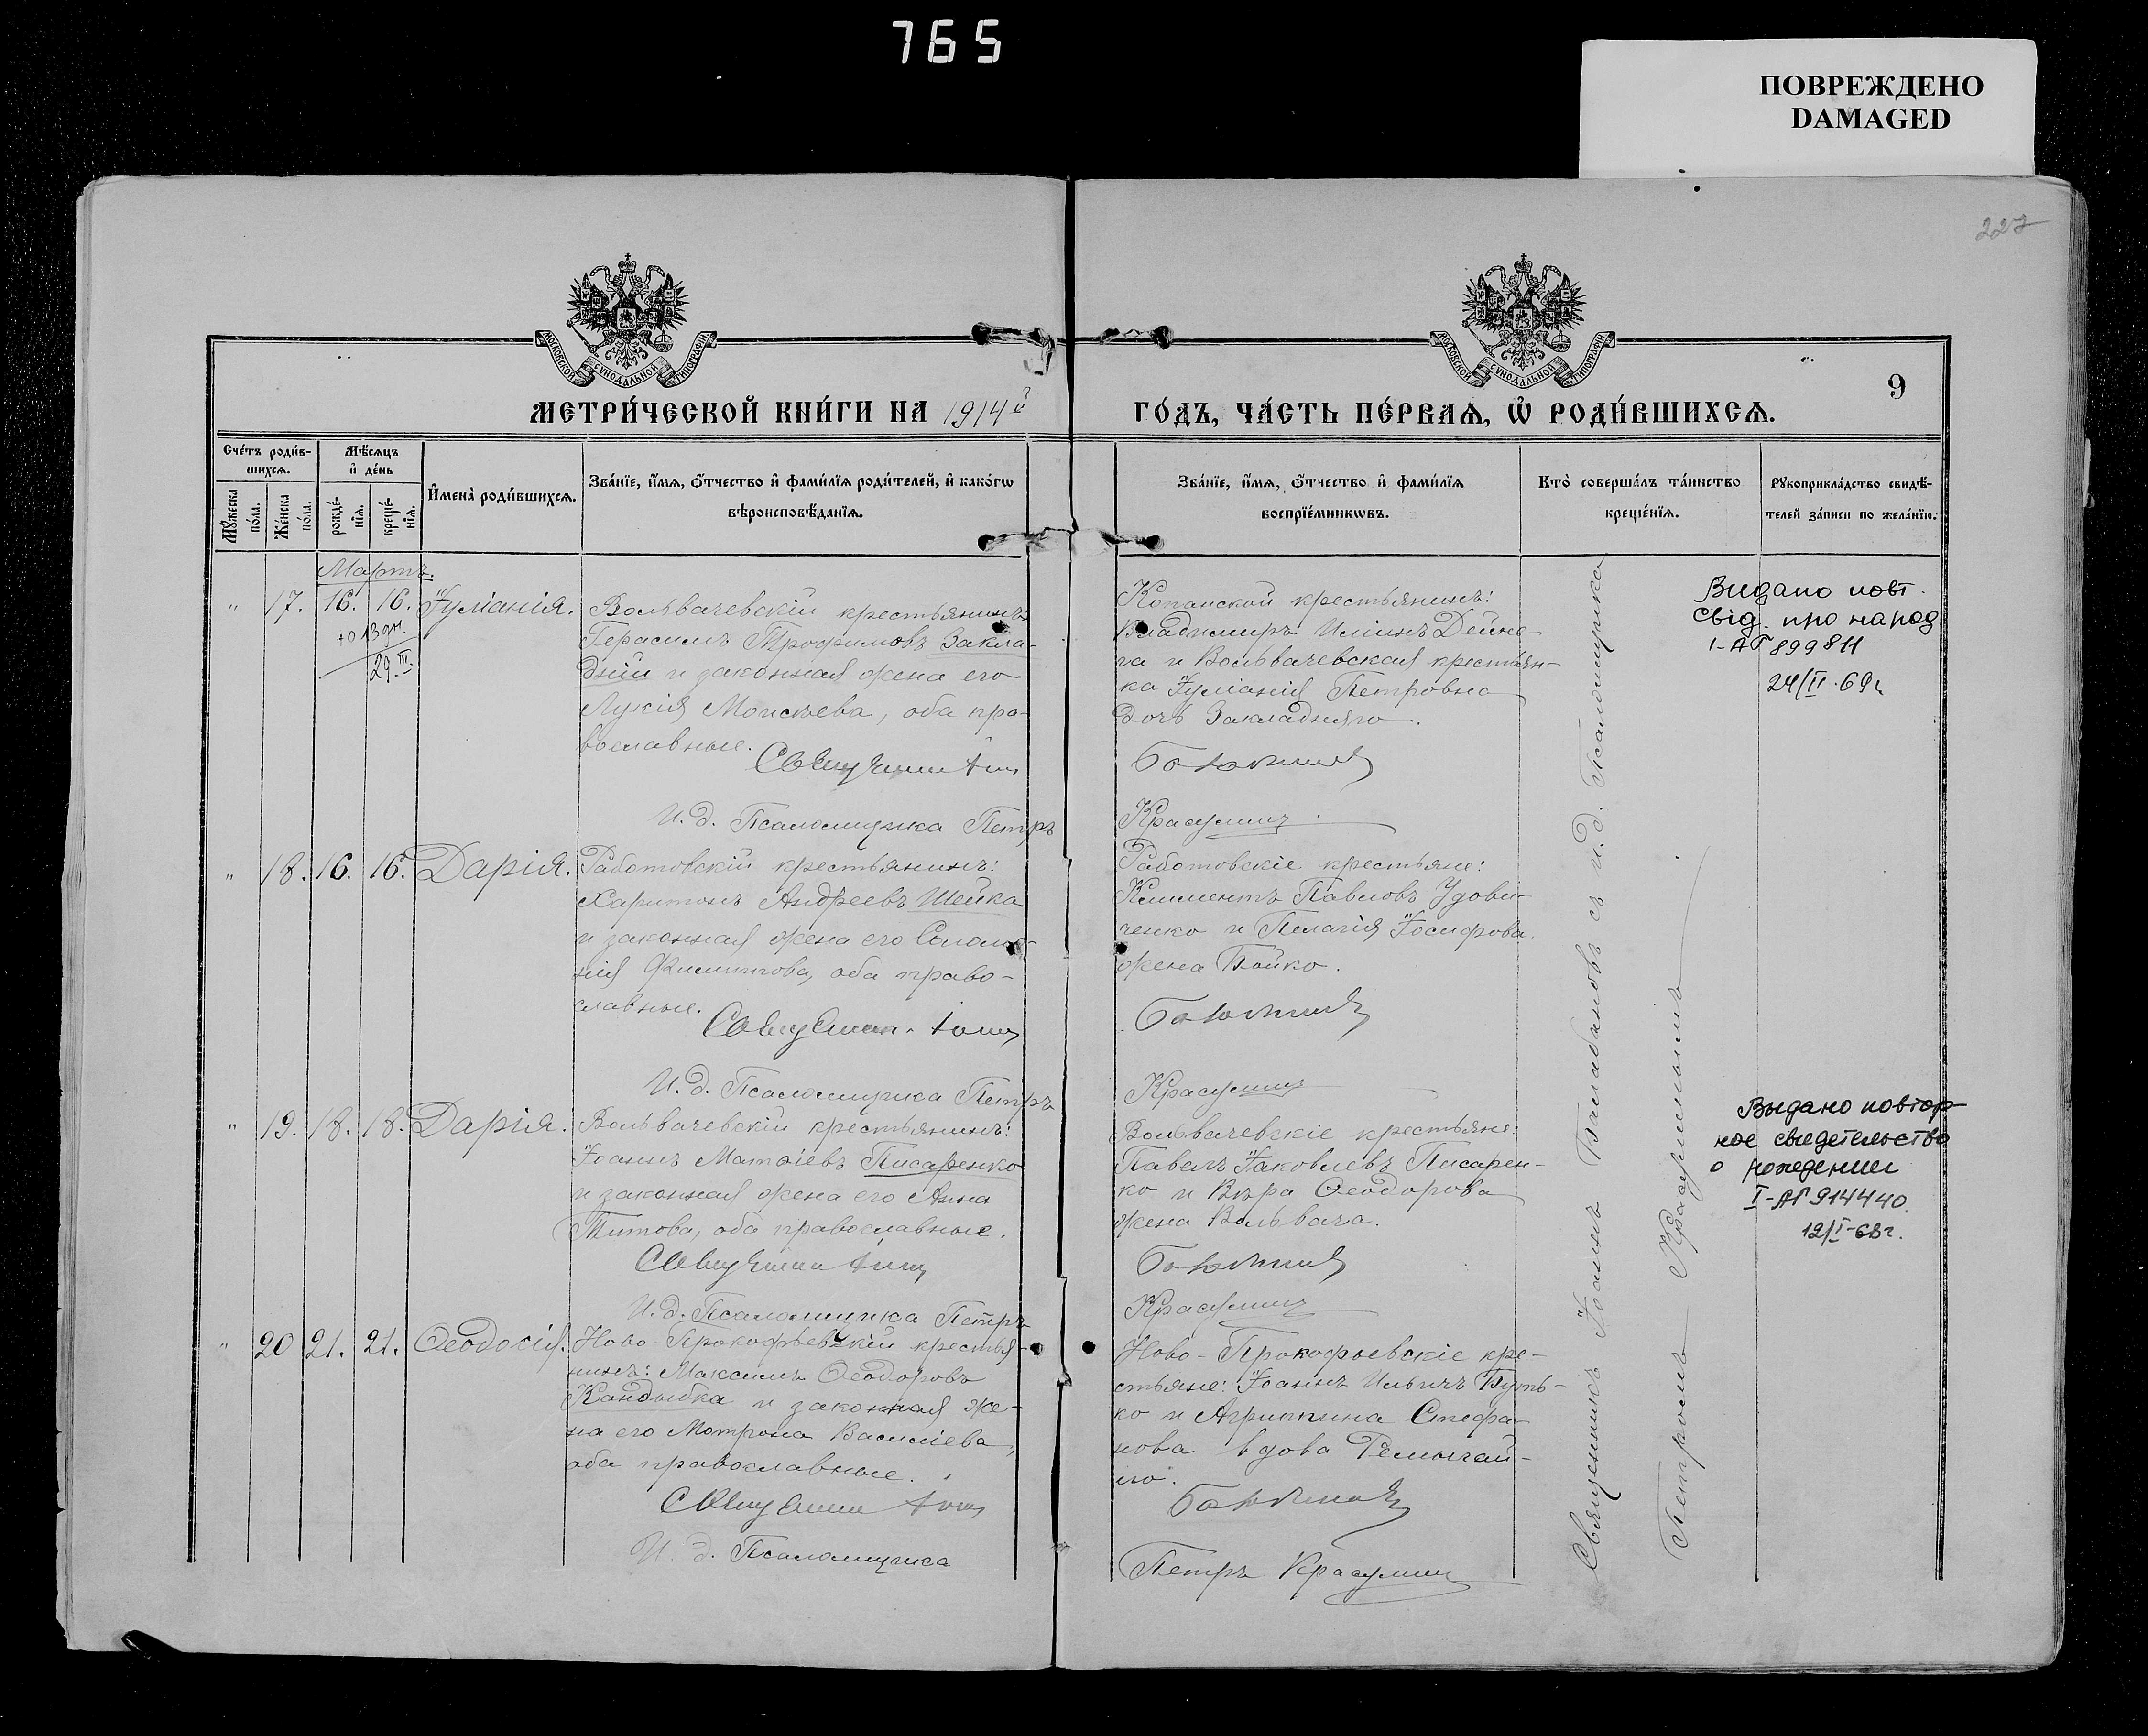 765
ПОВРЕЖДЕНО
DAMAGED
227
МОСКОВСКОЙ СУНОДАЛЬНОЙ ТИПОГРАФІИ
МОСКОВСКОЙ СУНОДАЛЬНОЙ ТИПОГРАФІИ
9
МЕТРИ́ЧЕСКОЙ КНИ́ГИ НА 1914й
ГО́ДЪ, ЧА́СТЬ ПЕ́РВАѦ, Ѡ҆ РОДИ́ВШИХСѦ.
Сче́тъ роди́в-
шихсѧ.
Мꙋжеска по́ла.
Же́нска по́ла.
Мѣ́сѧцъ
и҆ де́нь
рожде́-
нїѧ.
креще́-
нїѧ.
И҆мена̀ роди́вшихсѧ.
Зва́нїе, и҆́мѧ, ѻ҆́тчество и҆ фами́лїѧ роди́телей, и҆ како́гѡ
вѣроисповѣ́данїѧ.
Зва́нїе, и҆́мѧ, ѻ҆́тчество и҆ фами́лїѧ
воспрїе́мникѡвъ.
Кто̀ соверша́лъ та́инство
креще́нїѧ.
Рꙋкоприкла́дство свидѣ́-
телей за́писи по жела́нїю.
Мартъ.
" 17. 16. 16. Іуліанія.
+0 13 дн.
29.III.
Вольвачевскій крестьянинъ
Герасимъ Трофимовъ Закла-
дній и законная жена его
Лукія Моисѣева, оба пра-
вославные.
И. д. Псаломщика Петръ
Копанской крестьянинъ:
Владимиръ Иліинъ Дейне-
га и Вольвачевская крестьян-
ка Іуліанія Петровна
дочь Закладняго.
Красулинъ
Видано повт.
свід. про народ
I-АГ 899811
24/II.69г.
" 18. 16. 16. Дарія.
Работовскій крестьянинъ:
Харитонъ Андреевъ Шейка
и законная жена его Соломо-
нія Филиппова, оба право-
славные.
И. д. Псаломщика Петръ
Работовскіе крестьяне:
Климентъ Павловъ Удови-
ченко и Пелагія Іосифова
жена Бойко.
Красулинъ
" 19. 18. 18. Дарія.
Вольвачевскій крестьянинъ:
Іоаннъ Матѳіевъ Писаренко
и законная жена его Анна
Титова, оба православные.
И. д. Псаломщика Петръ
Вольвачевскіе крестьяне:
Павелъ Іаковлевъ Писарен-
ко и Вѣра Ѳеодорова
жена Вольвача.
Красулинъ
Выдано повтор-
ное свидетельство
о рождении
I-АГ 914440.
12/I-68г.
" 20 21. 21. Ѳеодосія.
Ново-Прокофьевскій крестья-
нинъ: Максимъ Ѳеодоровъ
Кандыбка и законная же-
на его Матрона Василіева,
оба православные.
И. д. Псаломщика
Ново-Прокофьевскіе кре-
стьяне: Іоаннъ Ильичъ Буть-
ко и Агриппина Стефа-
нова вдова
Петръ Красулинъ
Священникъ Іоаннъ съ и.д. Псаломщика
Петромъ Красулинымъ